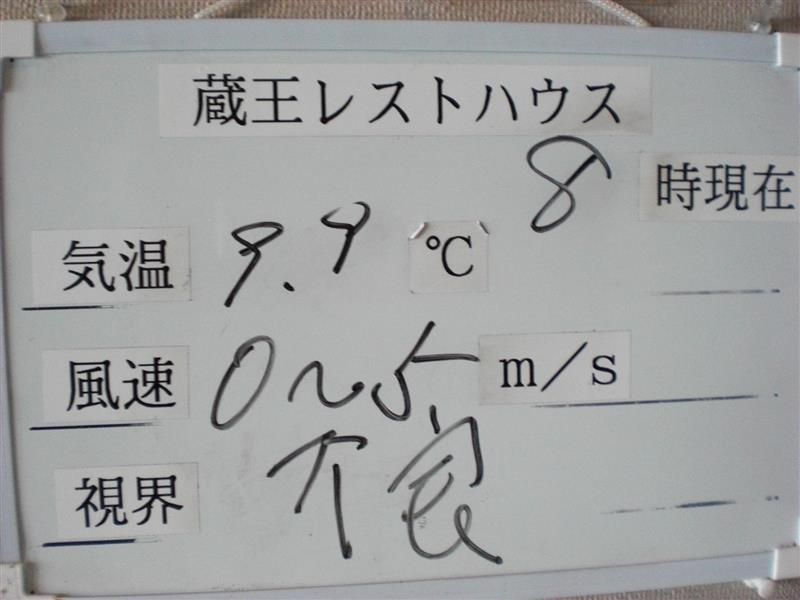 蔵王レストハウス
8 時現在
気温 9.9 ℃
風速 0〜5 m/s
視界 不良